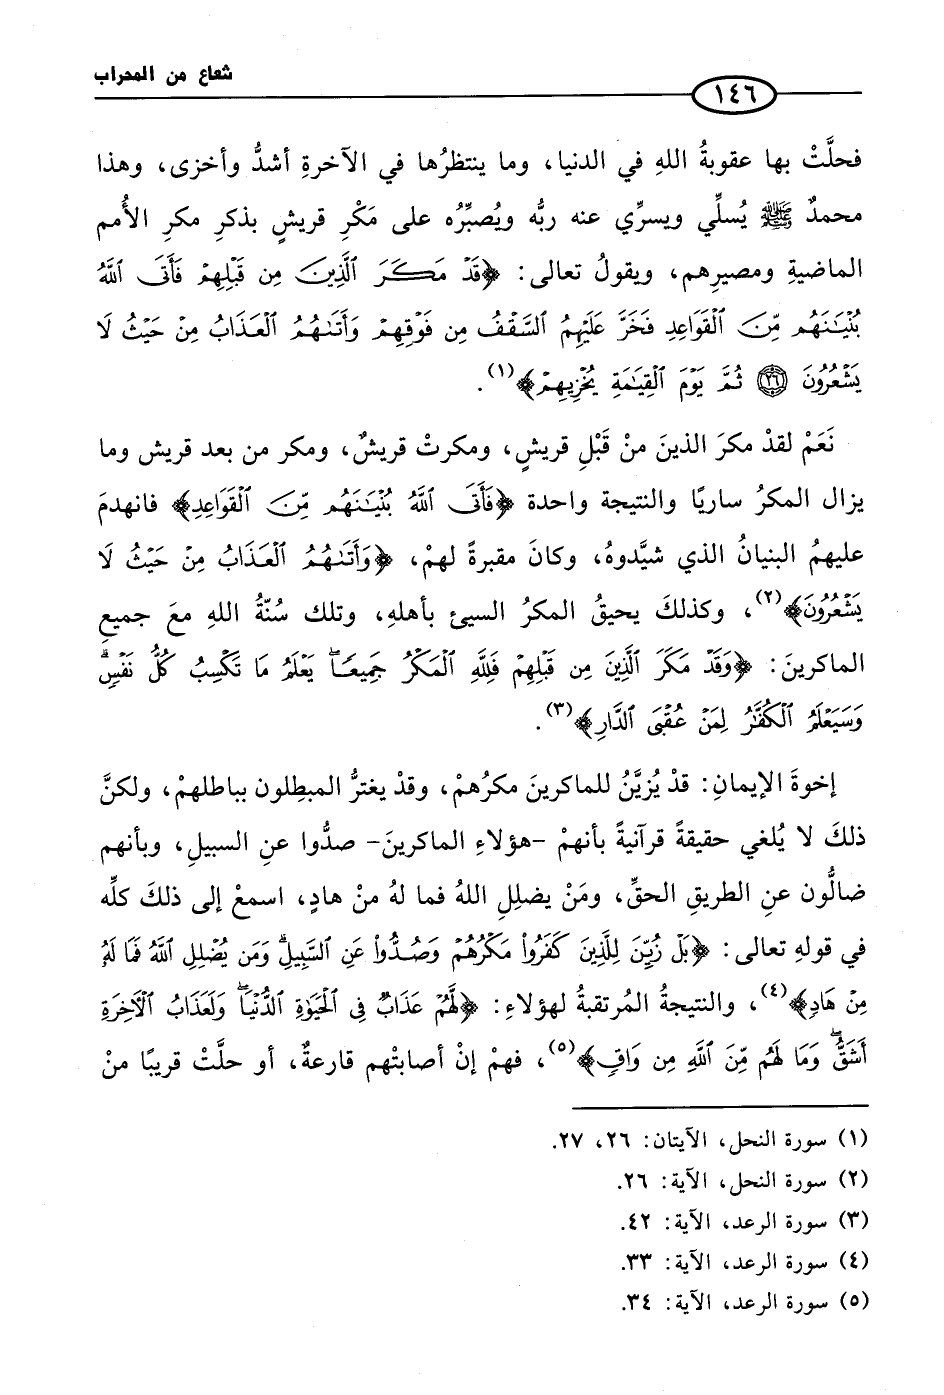 شعاع من المحراب
١٤٦
فحلَّتْ بها عقوبةُ اللهِ في الدنيا، وما ينتظرُها في الآخرةِ أشدُّ وأخزى، وهذا
محمدٌ ﷺ يُسلِّي ويسرِّي عنه ربُّه ويُصبِّرُه على مَكْرِ قريشٍ بذكرِ مكرِ الأُمم
الماضيةِ ومصيرِهم، ويقولُ تعالى: ﴿قَدْ مَكَرَ ٱلَّذِينَ مِن قَبْلِهِمْ فَأَتَى ٱللَّهُ
بُنْيَـٰنَهُم مِّنَ ٱلْقَوَاعِدِ فَخَرَّ عَلَيْهِمُ ٱلسَّقْفُ مِن فَوْقِهِمْ وَأَتَىٰهُمُ ٱلْعَذَابُ مِنْ حَيْثُ لَا
يَشْعُرُونَ ٢٦ ثُمَّ يَوْمَ ٱلْقِيَـٰمَةِ يُخْزِيهِمْ﴾(١).
نَعَمْ لقدْ مكرَ الذينَ منْ قَبْلِ قريشٍ، ومكرتْ قريشٌ، ومكر من بعد قريش وما
يزال المكرُ ساريًا والنتيجة واحدة ﴿فَأَتَى ٱللَّهُ بُنْيَـٰنَهُم مِّنَ ٱلْقَوَاعِدِ﴾ فانهدمَ
عليهمُ البنيانُ الذي شيَّدوهُ، وكانَ مقبرةً لهمْ، ﴿وَأَتَىٰهُمُ ٱلْعَذَابُ مِنْ حَيْثُ لَا
يَشْعُرُونَ﴾(٢)، وكذلكَ يحيقُ المكرُ السيئ بأهلهِ، وتلك سُنّةُ اللهِ معَ جميعِ
الماكرينَ: ﴿وَقَدْ مَكَرَ ٱلَّذِينَ مِن قَبْلِهِمْ فَلِلَّهِ ٱلْمَكْرُ جَمِيعًا ۖ يَعْلَمُ مَا تَكْسِبُ كُلُّ نَفْسٍ ۗ
وَسَيَعْلَمُ ٱلْكُفَّـٰرُ لِمَنْ عُقْبَى ٱلدَّارِ﴾(٣).
إخوةَ الإيمانِ: قدْ يُزيَّنُ للماكرينَ مكرُهمْ، وقدْ يغترُّ المبطِلون بباطلهمْ، ولكنَّ
ذلكَ لا يُلغي حقيقةً قرآنيةً بأنهمْ -هؤلاءِ الماكرينَ- صدُّوا عنِ السبيلِ، وبأنهم
ضالُّون عنِ الطريقِ الحقِّ، ومَنْ يضللِ اللهُ فما لهُ منْ هادٍ، اسمعْ إلى ذلكَ كلِّه
في قولهِ تعالى: ﴿بَلْ زُيِّنَ لِلَّذِينَ كَفَرُوا۟ مَكْرُهُمْ وَصُدُّوا۟ عَنِ ٱلسَّبِيلِ ۗ وَمَن يُضْلِلِ ٱللَّهُ فَمَا لَهُۥ
مِنْ هَادٍ﴾(٤)، والنتيجةُ المُرتقبةُ لهؤلاءِ: ﴿لَّهُمْ عَذَابٌ فِى ٱلْحَيَوٰةِ ٱلدُّنْيَا ۖ وَلَعَذَابُ ٱلْـَٔاخِرَةِ
أَشَقُّ ۖ وَمَا لَهُم مِّنَ ٱللَّهِ مِن وَاقٍ﴾(٥)، فهمْ إنْ أصابتْهم قارعةٌ، أو حلَّتْ قريبًا منْ
(١) سورة النحل، الآيتان: ٢٦، ٢٧.
(٢) سورة النحل، الآية: ٢٦.
(٣) سورة الرعد، الآية: ٤٢.
(٤) سورة الرعد، الآية: ٣٣.
(٥) سورة الرعد، الآية: ٣٤.